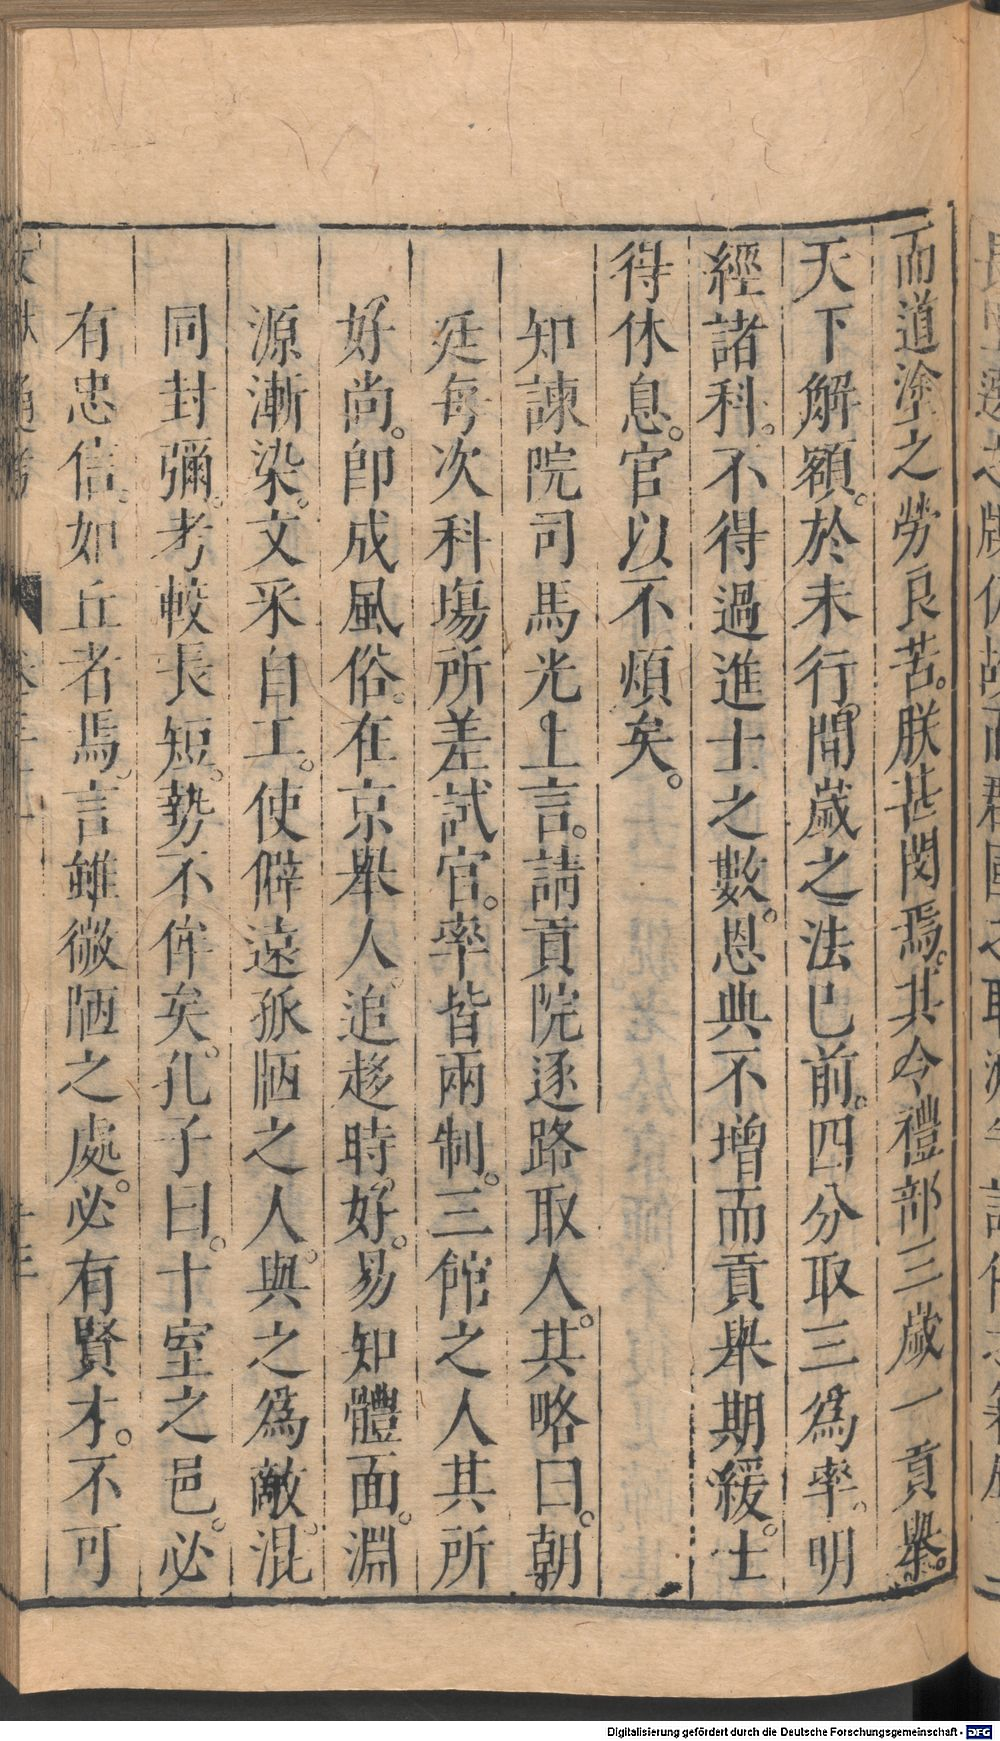 而道塗之勞良苦。朕甚閔焉。其今禮部三歲一貢舉。
天下解額。於未行間歲之法已前。四分取三為率。明
經諸科。不得過進士之數。恩典不增而貢舉期緩。士
得休息。官以不煩矣。
知諫院司馬光上言。請貢院逐路取人。其略曰。朝
廷每次科塲所差試官。率皆兩制。三館之人其所
好尚。即成風俗。在京舉人。追趍時好。易知體面。淵
源漸染。文采自工。使僻遠孤陋之人。與之為敵。混
同封彌。考較長短。勢不侔矣。孔子曰。十室之邑。必
有忠信。如丘者焉。言雖微陋之處。必有賢才。不可
Digitalisierung gefördert durch die Deutsche Forschungsgemeinschaft - DFG